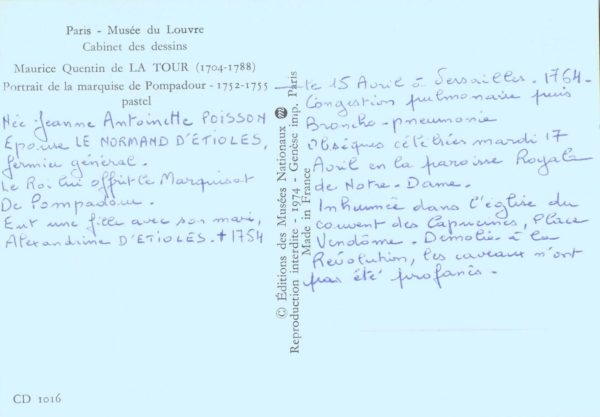 Paris - Musée du Louvre
Cabinet des dessins
Maurice Quentin de LA TOUR (1704-1788)
Portrait de la marquise de Pompadour - 1752-1755
pastel
Née Jeanne Antoinette POISSON
Epouse LE NORMAND D'ÉTIOLES,
fermier général.
Le Roi lui offrit le Marquisat
De Pompadour.
Eut une fille avec son mari,
Alexandrine D'ETIOLES. + 1754
© Éditions des Musées Nationaux
Reproduction interdite - 1974 - Genèse imp. Paris
Made in France
- le 15 Avril à Versailles - 1764 -
Congestion pulmonaire puis
Broncho-pneumonie
Obsèques célébrées mardi 17
Avril en la paroisse Royale
de Notre-Dame.
Inhumée dans l'église du
couvent des Capucines, Place
Vendôme. Démolie à la
Révolution, les caveaux n'ont
pas été profanés.
CD 1016